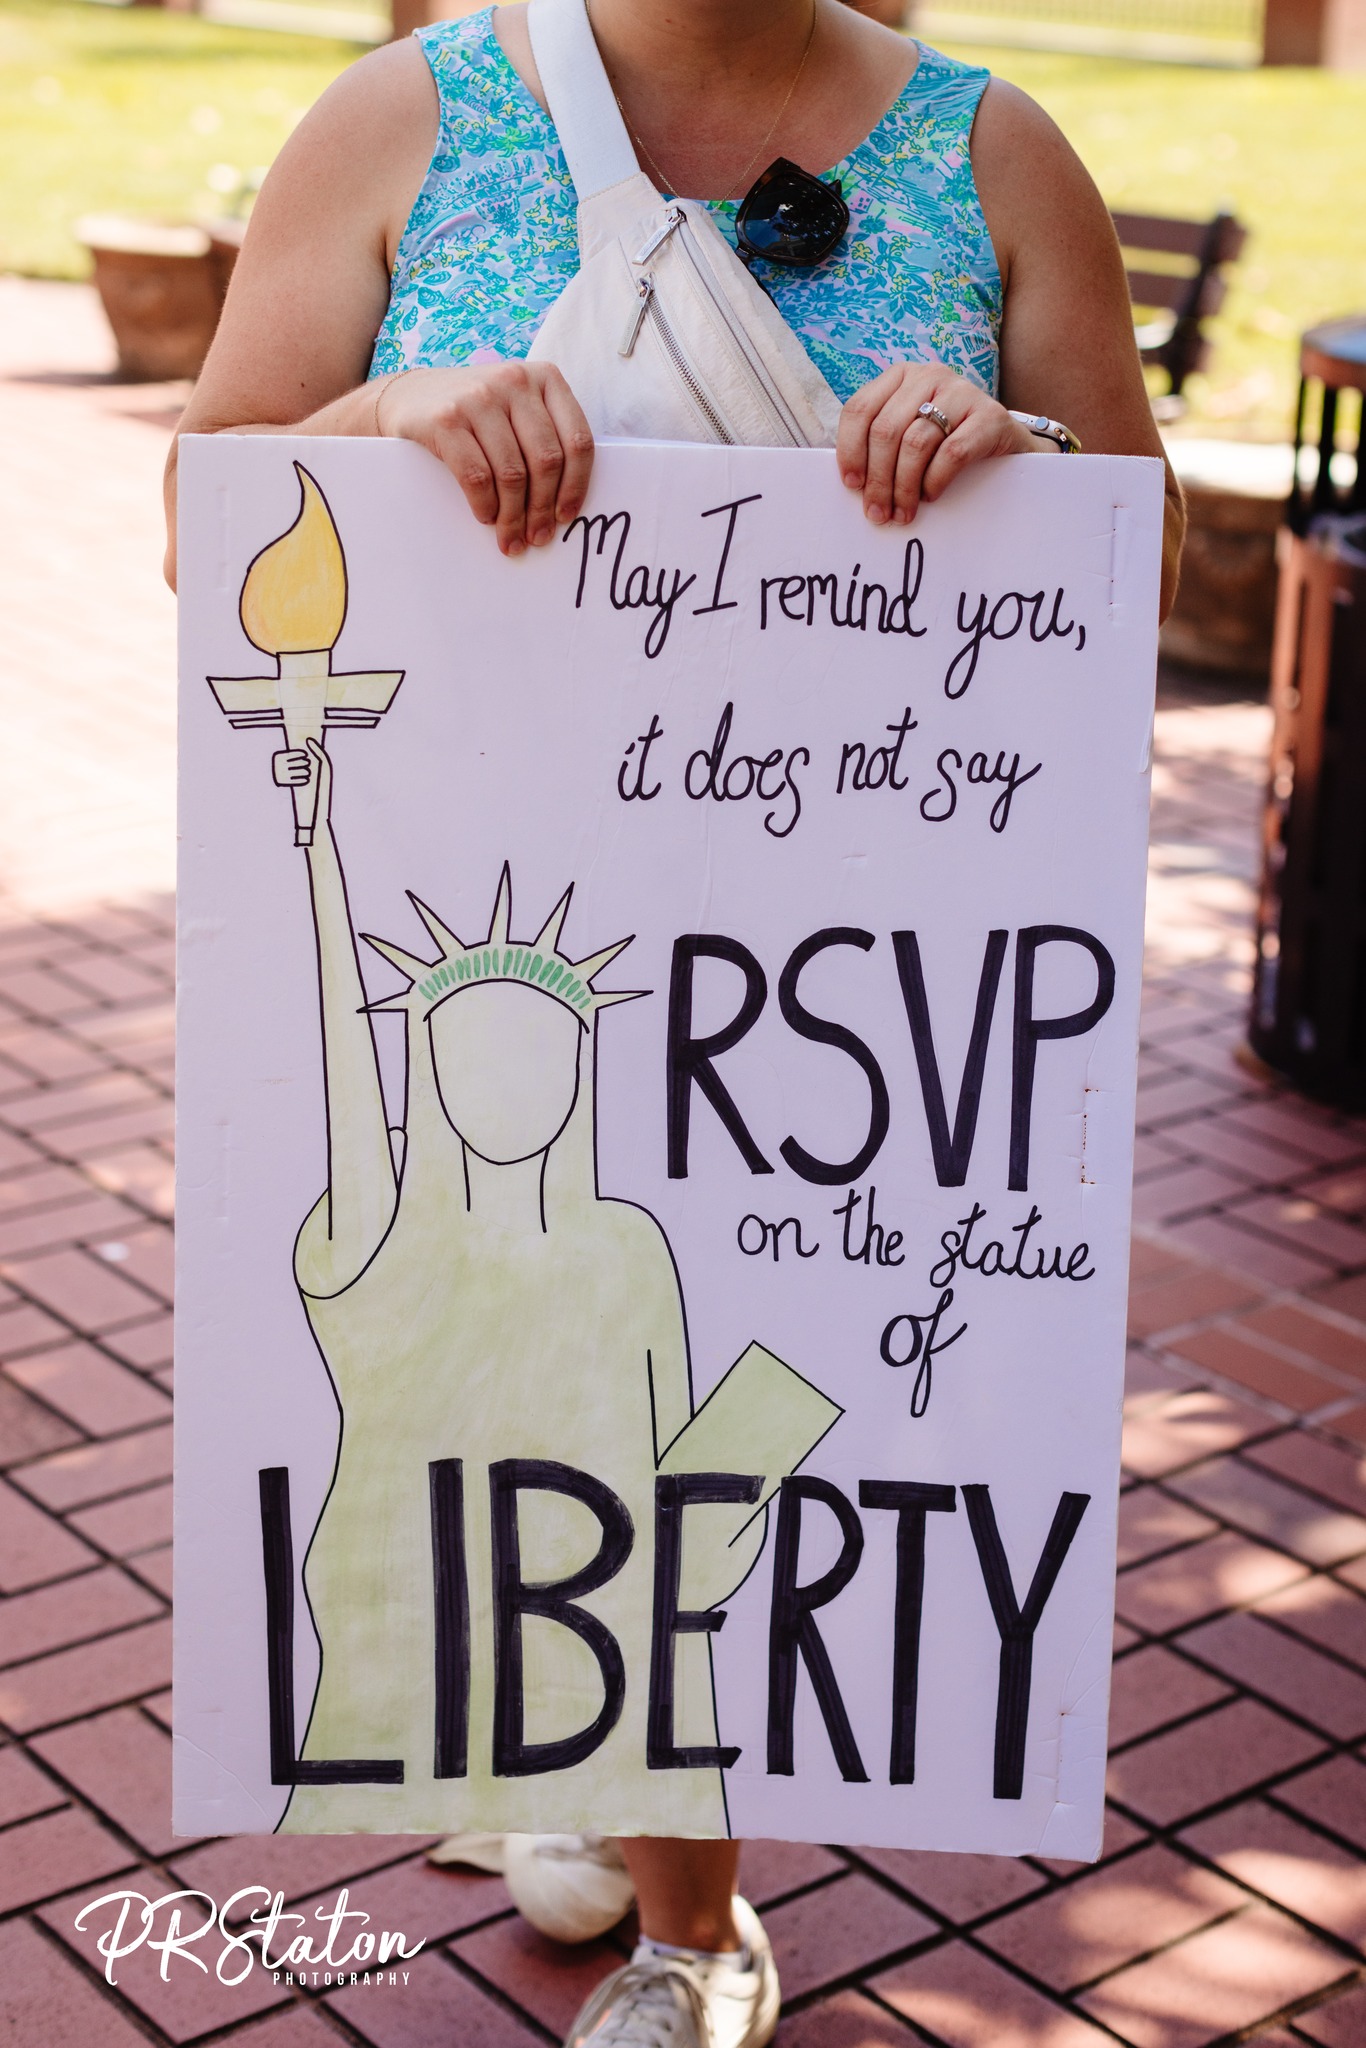 May I remind you,
it does not say
RSVP
on the statue
of
LIBERTY
PRStaton
PHOTOGRAPHY